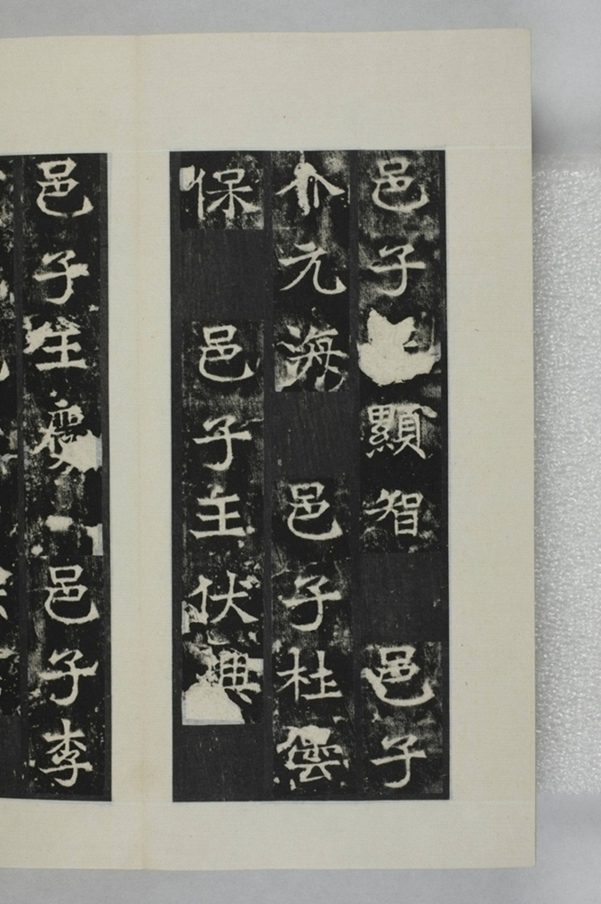 邑子顯智 邑子
介元海 邑子杜雲
保 邑子主伏興
邑子主慶 邑子李